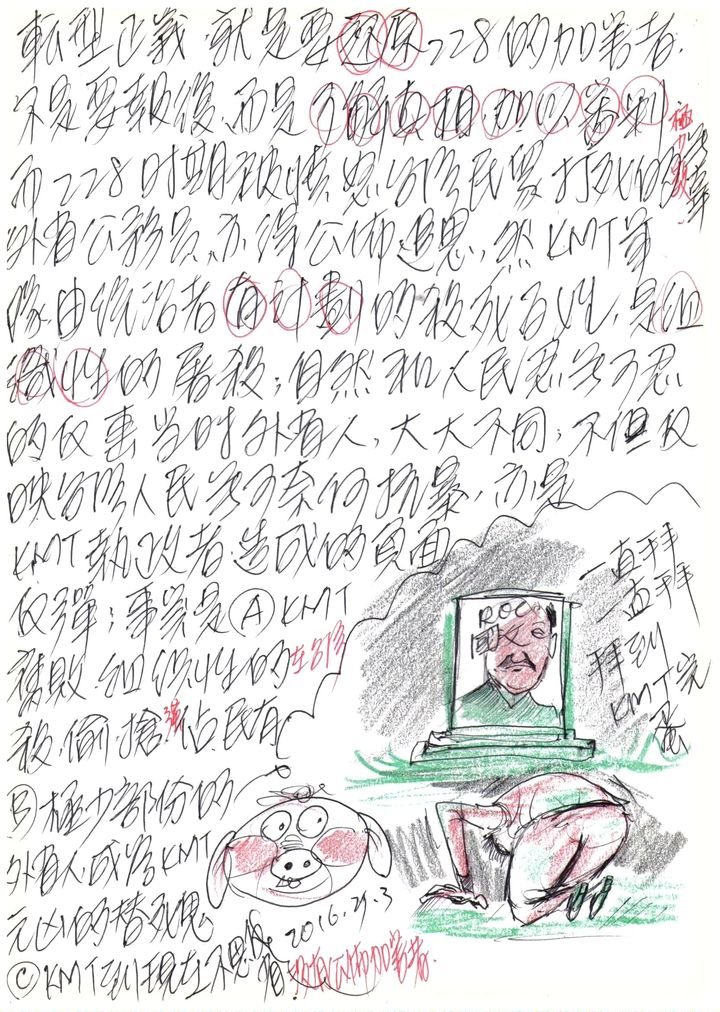 轉型正義、就是要還原228的加害者、
不是要報復、而是了解真相、加以審判
極少數
而228时期被憤怒台灣民眾打死的
外省公務員、亦得公佈追思、然KMT軍
隊由統治者有計劃的殺死百姓、是組
織性的屠殺；自然和人民忍無可忍
的仅事当时外省人、大大不同；不但反
映台灣人民無可奈何抗暴、而是
KMT執政者造成的負面
反彈；事实是Ⓐ KMT
腐敗、組織性的在台灣
殺、偷、搶、強佔民有
Ⓑ極少部份的
外省人、成為KMT
元凶的替死鬼
Ⓒ KMT到現在不思
沒有公佈加害者.
2016.4.3
ROC
國父
一直拜
一直拜
拜到
KMT完
蛋